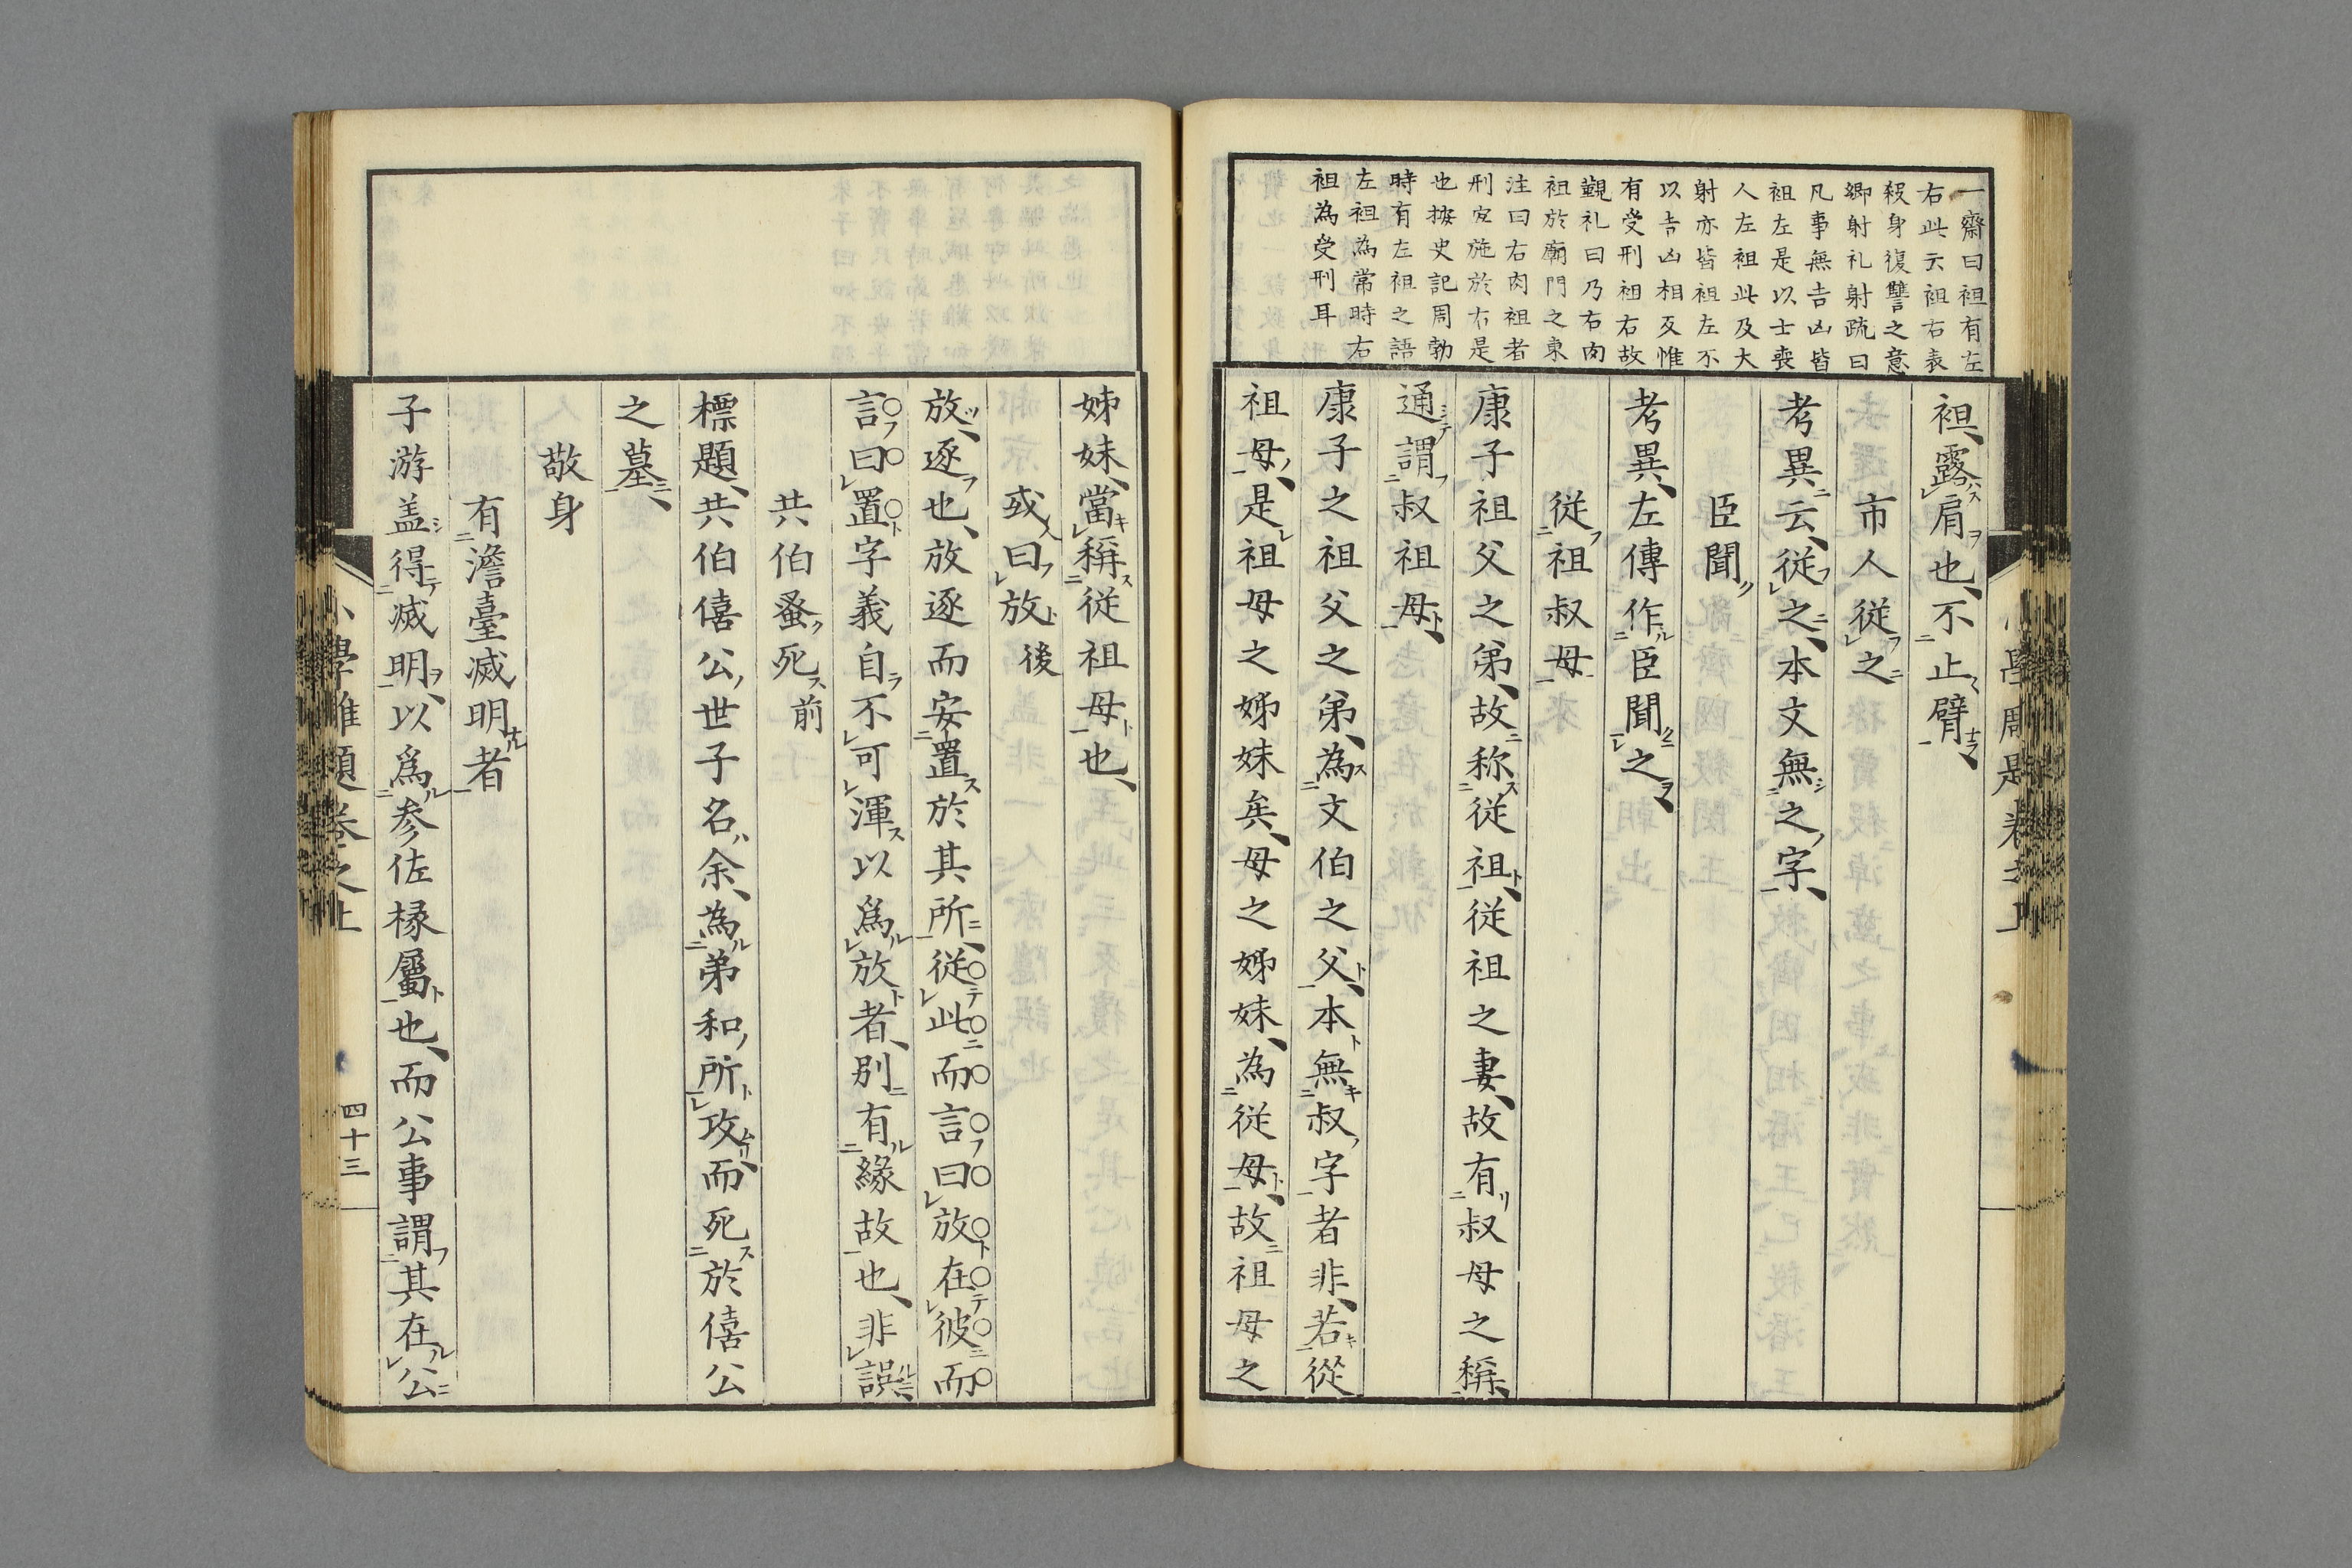 一齋曰袒有左
右此云袒右表
殺身復讐之意
鄉射礼射疏曰
凡事無吉凶皆
袒左是以士喪
人左袒此及大
射亦皆袒左不
以吉凶相反惟
有受刑袒右故
覲礼曰乃右肉
袒於廟門之東
注曰右肉袒者
刑宜施於右是
也按史記周勃
時有左袒之語
左袒為常時右
袒為受刑耳
袒、露肩也、不止臂、
市人從之
考異云、從之、本文無之字、
臣聞
考異、左傳作臣聞之、
従祖叔母
康子祖父之弟、故称従祖、従祖之妻、故有叔母之稱、
通謂叔祖母、
康子之祖父之弟、為文伯之父、本無叔字者非、若從
祖母、是祖母之姊妹矣、母之姊妹、為従母、故祖母之
姊妹、當稱従祖母也、
或曰放後
放、逐也、放逐而安置於其所、従此而言曰放在彼而
言曰置字義自不可渾以爲放者、別有緣故也、非誤
共伯蚤死前
標題、共伯僖公世子名余、為弟和所攻、而死於僖公
之墓、
敬身
有澹臺滅明者
子游盖得滅明、以爲参佐椽屬也、而公事謂其在公
學雖題卷之上
四十三